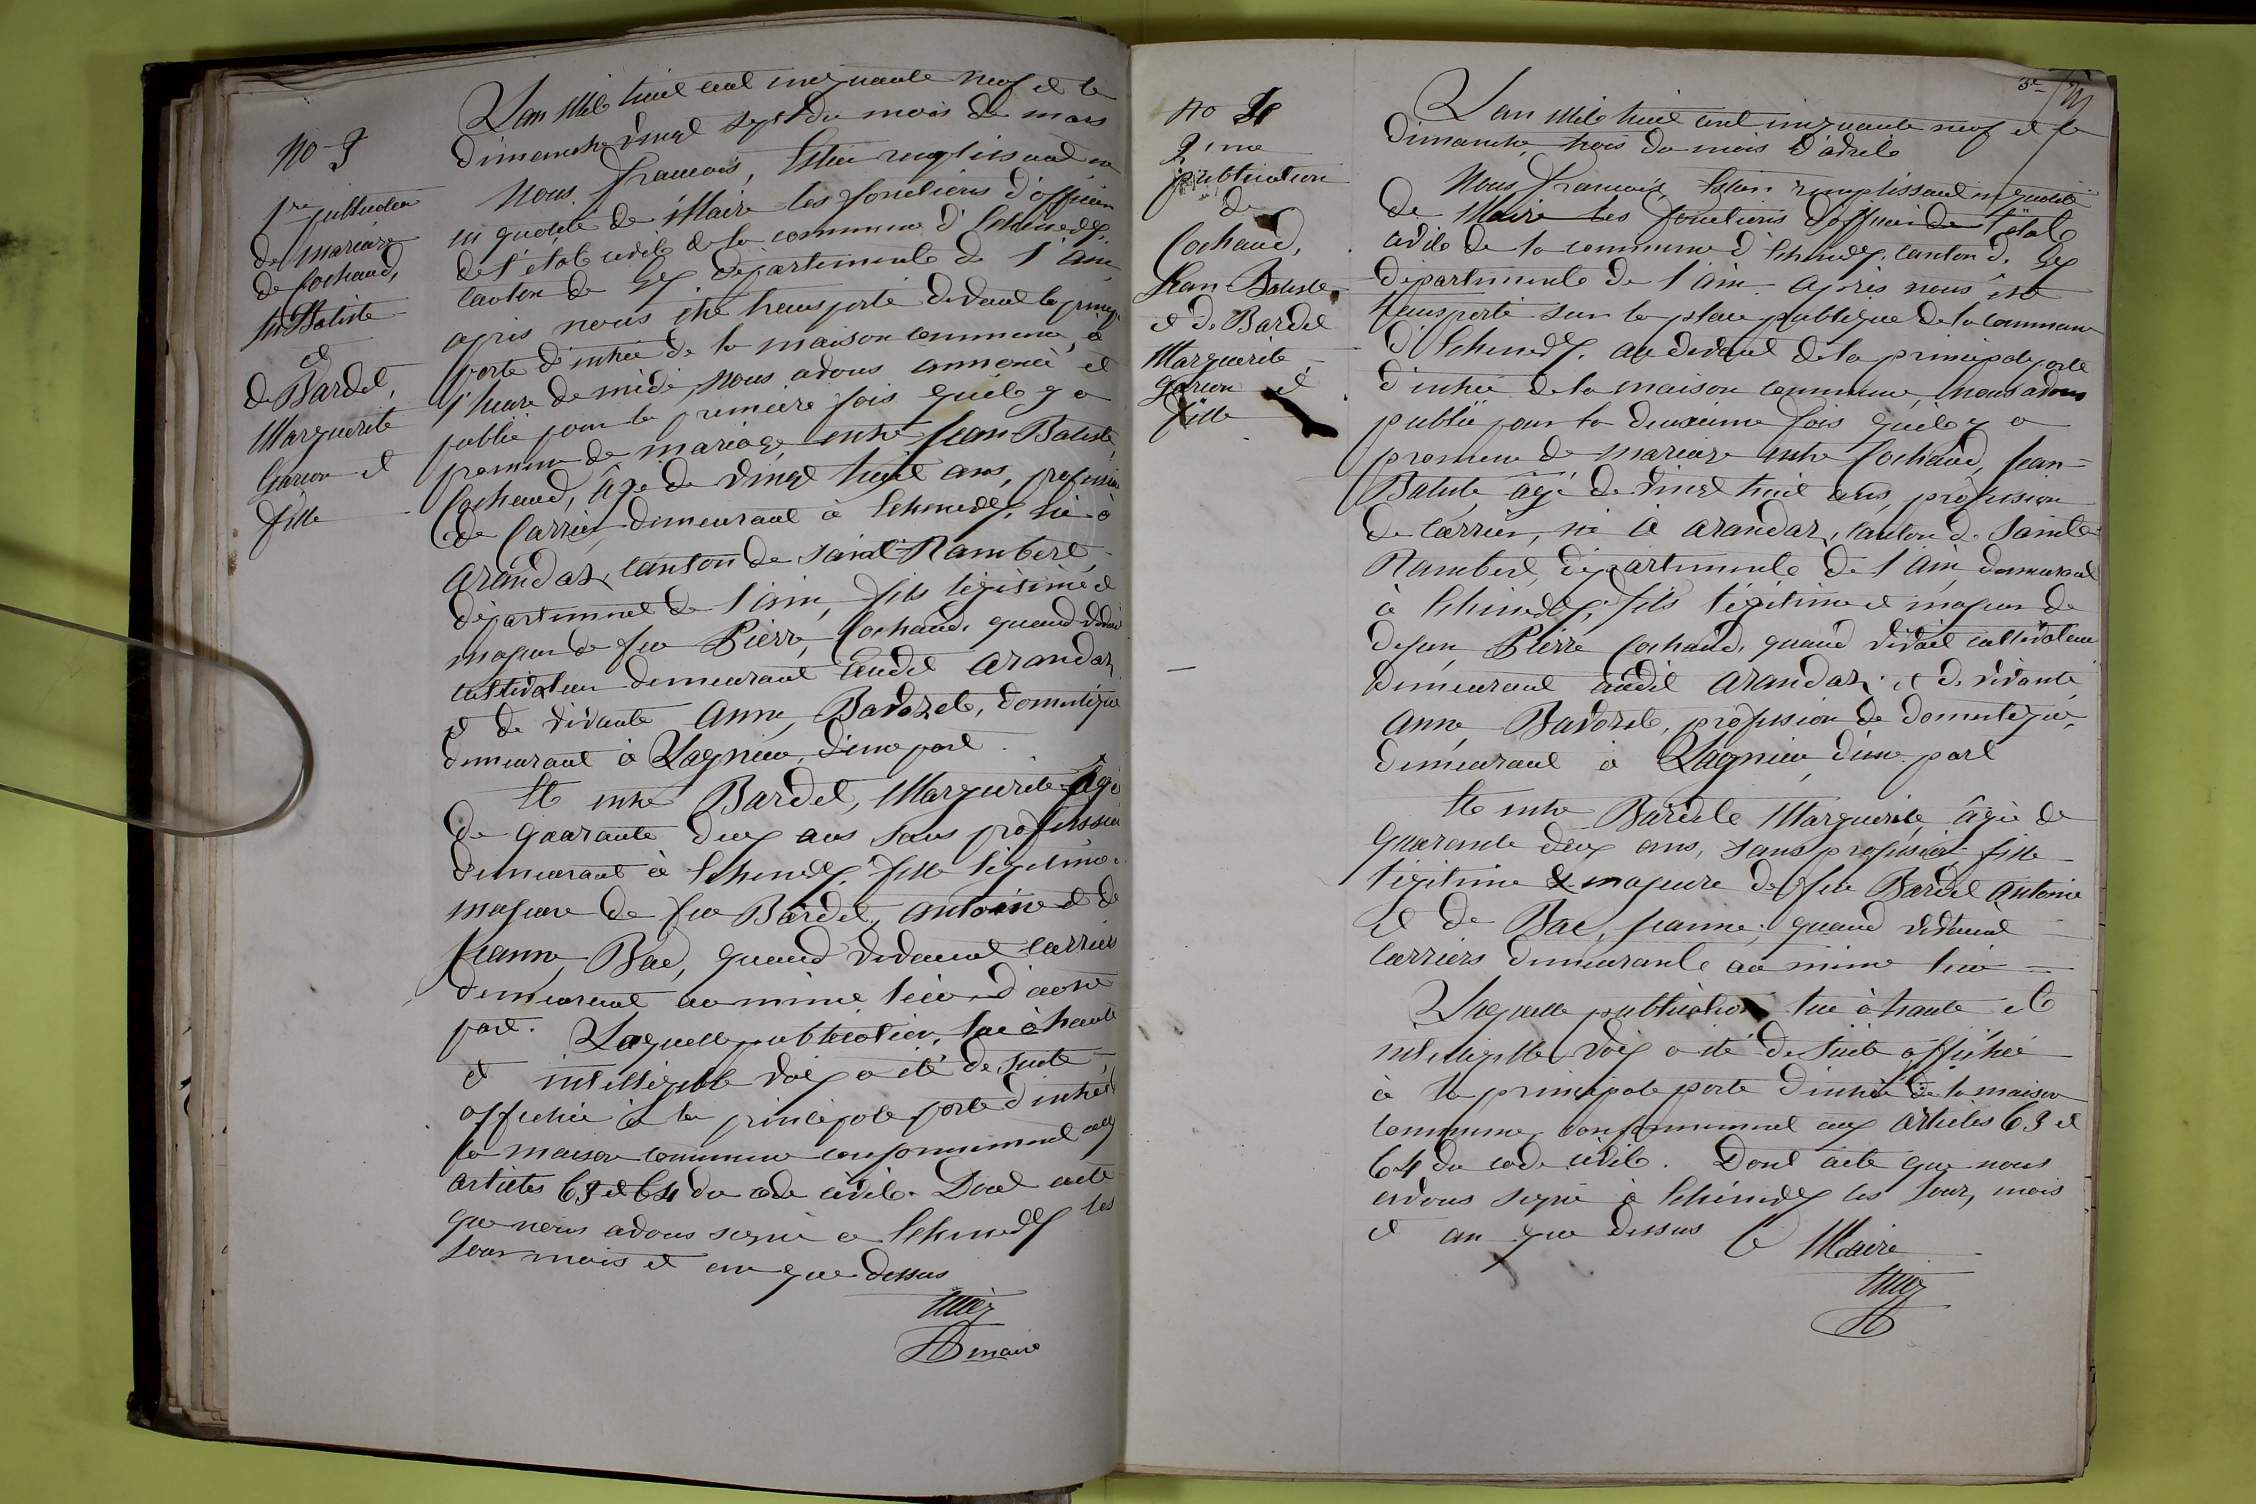 No 3
1re publication
de mariage
de Cochaud,
Jn Batiste
et
de Bardet,
Marguerite
Garcon et
fille
L'an mil huit cent cinquante neuf et le
dimanche vingt sept du mois de mars
Nous françois, remplissant en
en qualité de Maire les fonctions d'officier
de l'état civile de la commune d'Echenevex
canton de Gex département de l'ain
après nous été transporté devant la princip
porte d'entrée de la maison commune, à
l'heure de midi, Nous avons annoncé et
publié pour la première fois quile y a
promesse de mariage, entre Jean Batiste
Cochaud, âgé de vingt huit ans, profession
de Carrier, demeurant à Echenevex, né à
Arandaz, canton de Saint-Rambert,
département de l'ain, fils légitime et
majeur de feu Pierre, Cochaud, quand vivait
cultivateur demeurant audit Arandaz
et de vivante Anne, Bavozet, domestique
demeurant à Lagnieu, d'une part.
Et entre Bardet, Marguerite âgé
de quarante deux ans sans profession
demeurant à Echenevex, fille légitime et
majeure de feu Bardet, antoine et de
Jeanne, Bac, quand vivaient carriers
demeurant au même lieu d'autre
part. Laquelle publication, lue à haute
et intelligible voix a été de suite,
affichée à la principale porte d'entrée
la maison commune conformément aux
articles 63 et 64 du code civile. Dont acte
que nous avons signé à Echenevex les
Jour mois et an que dessus
maire
No 4
2ime
publication
de
Cochaud,
Jean-Batiste
et de Bardet
Marguerite,
garcon et
fille
5e
L'an mile huit cent cinquante neuf et le
dimanche trois du mois d'avrile
Nous françois, remplissant en qualité
de Maire les fonctions d'officier de l'état
civile de la commune d'Echenevex, canton de Gex
départemente de l'ain. après nous être
transporté sur la place publique de la commune
d'Echenevex, au devant de la principale porte
d'entrée de la maison commune, nous avons
publié pour la deuxième fois quile y a
promesse de mariage entre Cochaud, Jean-
Batiste, âgé de vingt huit ans, profession
de carrier, né à Arandaz, canton de Sainte
Rambert, départemente de l'ain, demeurant
à Echenevex, fils légitime et majeur de
defun, Pierre Cochaud, quand vivait cultivateur
demeurant audit Arandaz, et de vivante
Anne, Bavozet, profession de domestique,
demeurant à Lagnieu, d'une part
Et entre Bardet Marguerite, âgée de
quarante deux ans, sans profession fille
légitime & majeure de feu Bardet Antoine
et de Bac, Jeanne, quand vivaient
Carriers demeurante au même lieu
Laquelle publication lue à haute et
intelligible voix a été de suite affichée
à la principale porte d'entrée de la maison
commune, conformément aux articles 63 et
64 du code civile. Dont acte que nous
avons signé à Echenevex les Jour, mois
et an que dessus Le Maire